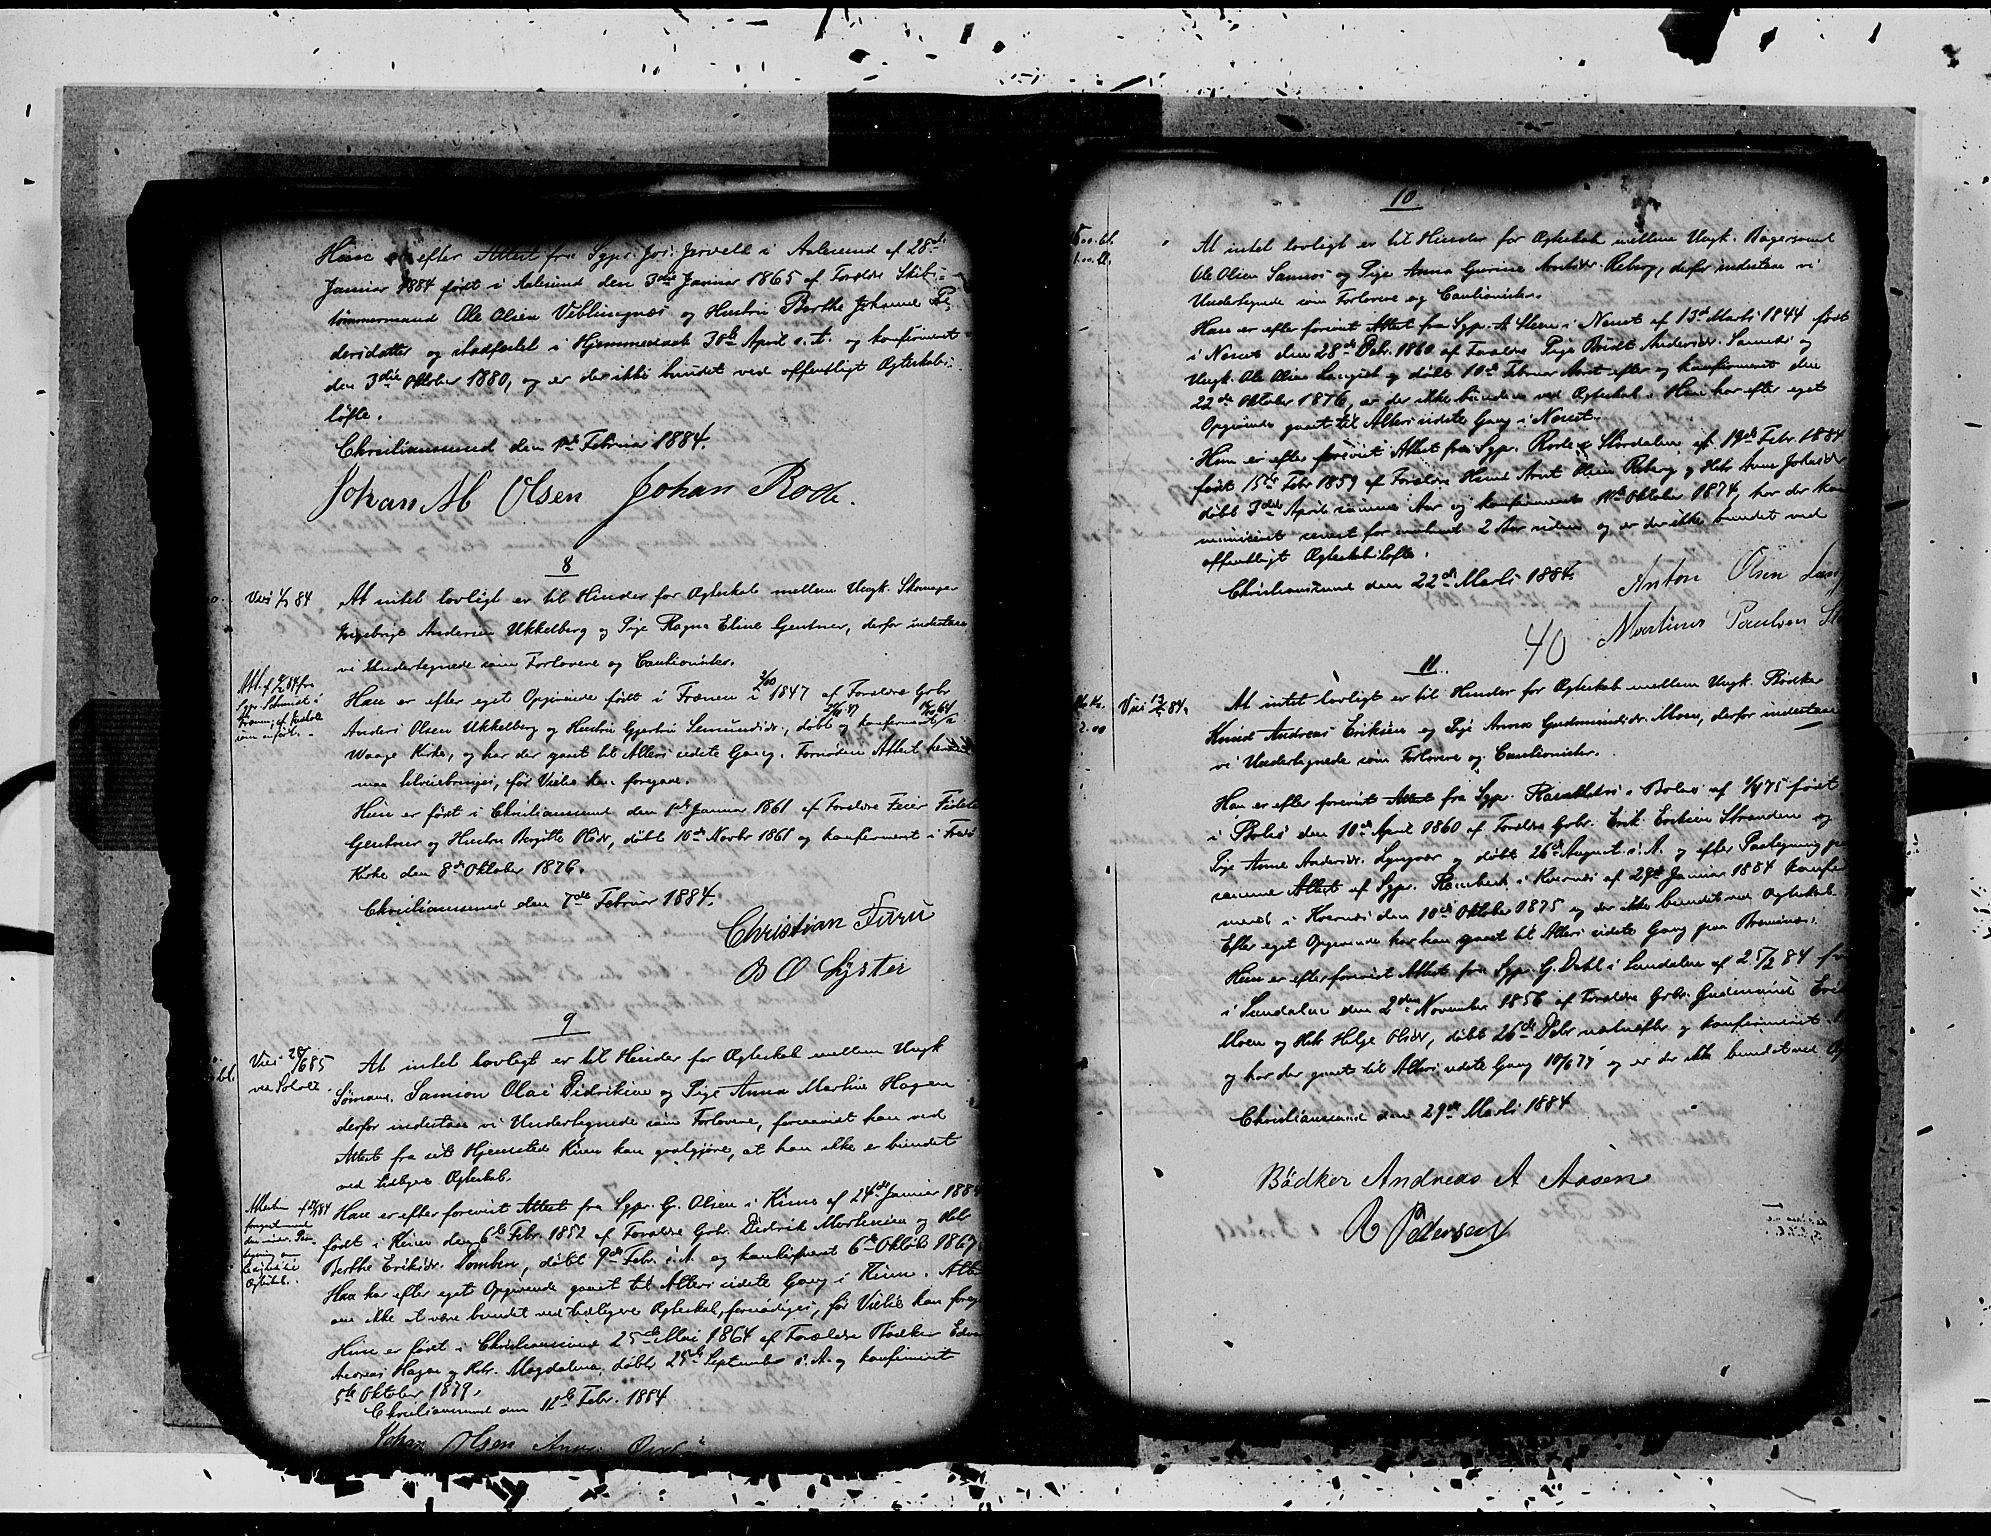 Hun er efter Attest fra Sgpr. Jos. Jervell i Aalesund af 28de
Januar 1884 født i Aalesund den 3die Januar 1865 af Forældre Skibs-
tømmermand Ole Olsen Viblungnes og Hustru Berthe Johanne Pe
dersdatter og stadfæstet i Hjemmedaab 30te April s. A. og konfirmeret
den 3die Oktober 1880, og er der ikke bundet ved offentligt Ægteskabs-
løfte.
Christianssund den 1ste Februar 1884.
Johan M Olsen Johan Rode.
8
Viet 84
At intet lovligt er til Hinder for Ægteskab mellem Ungk. Skomager
Ingebrigt Andersen Ukkelberg og Pige Ragna Eline Gentner, derfor indestaae
vi Undertegnede som Forlovere og Cautionister.
Att. af fra
Sgpr. Schmidt i
Han er efter eget Opgivende født i Frænen i 1847 af Forældre Gbr
Anders Olsen Ukkelberg og Hustru Gjertru Semundsdr., døbt og konfirmeret i
Waage Kirke, og har der gaaet til Alters sidste Gang. Fornøden Attest
maa tilveiebringes, før Vielse kan foregaae.
Hun er født i Christianssund den 1ste Januar 1861 af Forældre Feier Fidele
Gentner og Hustru Bergitte Olsdr, døbt 10de Novbr 1861 og konfirmeret i Fredø
Kirke den 8de Oktober 1876.
Christianssund den 7de Februar 1884.
Christian Furu
B O Lyster
9
Viet 85
At intet lovligt er til Hinder for Ægteskab mellem Ungk
Sømand Samson Olai Didriksen og Pige Anna Martine Hagen
derfor indestaae vi Undertegnede som Forlovere, forsaavidt han ved
Attest fra sit Hjemsted Kinn kan godtgjøre, at han ikke er bundet
ved tidligere Ægteskab.
Attesten af 84
Ægteskab.
Han er efter forevist Attest fra Sgpr. G. Olsen i Kinns af 24de Januar 1884
født i Kinn den 6te Febr. 1852 af Forældre Gbr. Didrik Mortensen og Hst.
Berthe Eriksdr. Domben, døbt 9de Febr. s. A. og konfirmeret 6te Oktob. 1867.
Han har efter eget Opgivende gaaet til Alters sidste Gang i Kinn. Att
om ikke at være bundet ved tidligere Ægteskab, fornødiges, før Vielse kan foreg
Hun er født i Christianssund 25de Mai 1864 af Forældre Bødker Edva
Andreas Hagen og Hstr. Magdalena, døbt 25de Septembr s. A. og konfirmeret
5te Oktober 1879.
Christianssund den 12te Febr. 1884
Johan Olsen
10
At intet lovligt er til Hinder for Ægteskab mellem Ungk. Bagersvend
Ole Olsen Sannes og Pige Anna Gurine Arntsdr. Reberg, derfor indestaae vi
Undertegnede som Forlovere og Cautionister.
Han er efter forevist Attest fra Sgpr. A. Steen i Nesset af 13de Marts 1844 født
i Nesset den 28de Debr. 1860 af Forældre Pige Beret Andersdr. Sannes og
Ungk. Ole Olsen Langset og døbt 10de Februar Aaret efter og konfirmeret den
22de Oktober 1876, er der ikke bunden ved Ægteskab. Han har efter eget
Opgivende gaaet til Alters sidste Gang i Nesset.
Hun er efter forevist Attest fra Sgpr. Rode i Størdalen af 19de Febr. 1884
født 15de Febr 1859 af Forældre Hmd Arnt Olsen Reberg og Hstr. Anne Johnsdr
døbt 3die April samme Aar og konfirmeret 11te Oktober 1874, har der kom
municeret senest for omtrent 2 Aar siden og er der ikke bundet ved
offentligt Ægteskabsløfte.
Christianssund den 22de Marts 1884.
Anton Olsen
Martinus Paulsen
40
11
Viet 84.
2.00
At intet lovligt er til Hinder for Ægteskab mellem Ungk. Bødker
Knud Andreas Eriksen og Pige Anna Gudmundsdr. Moen, derfor indestaae
vi Undertegnede som Forlovere og Cautionister.
Han er efter forevist Attest fra Sgpr. i Bolsø af 75 født
i Bolsø den 10de April 1860 af Forældre Gbr. Erik Eriksen Stranden og
Pige Anne Andersdr. Lyngvær og døbt 26de August s. A. og efter Paategning paa
samme Attest af Sgpr. i Kvernes af 29de Januar 1884 konfir
meret i Kvernes den 10de Oktober 1875 og der ikke bundet ved Ægteskab.
Efter eget Opgivende har han gaaet til Alters sidste Gang paa Bremsnes.
Hun er efter forevist Attest fra Sgpr. G. Dahl i Sundalen af 25/2 84
i Sundalen den 2den November 1856 af Forældre Gbr. Gudmund
Moen og Hst. Helge Olsdr, døbt 26de Debr næstefter og konfirmeret
og har der gaaet til Alters sidste Gang 10/6 77 og er der ikke bundet ved
Christianssund den 29de Marts 1884
Bödker Andreas A Aasen
R Pedersen